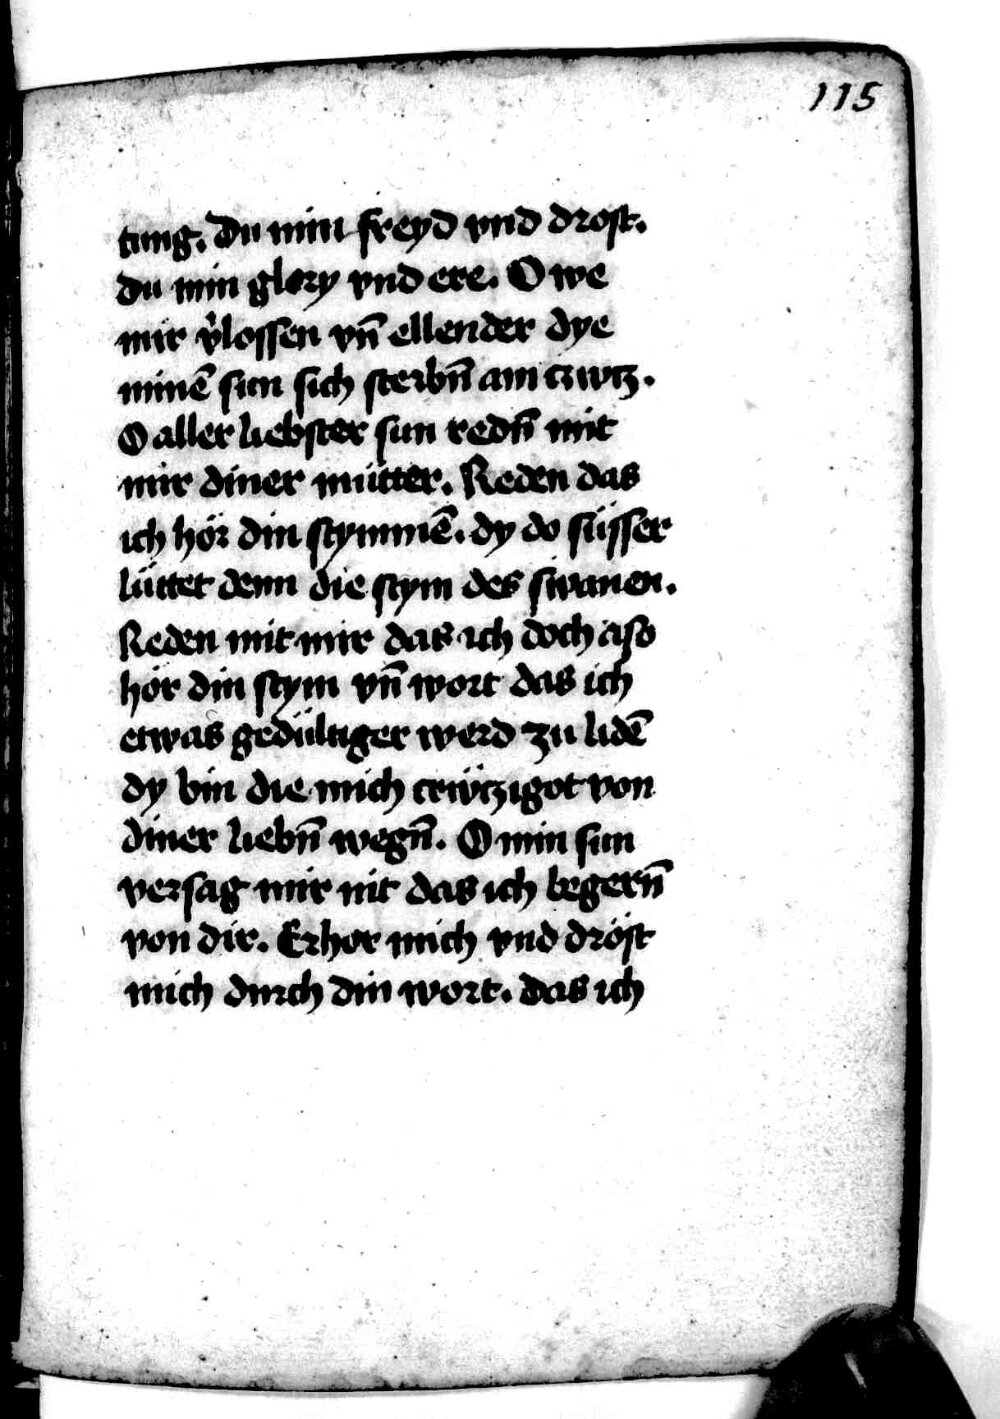 115
tung. Du min freyd vnd drost.
du min glory vnd ere. O we
mir v̓lossen vn̄ ellender dye
minē sun sich sterbn̄ am
O aller liebster sun redn̄ mit
mir diner mütter. Reden das
ich hör din stymmē. dy do süsser
lüttet denn die stym des swanen.
Reden mit mir das ich doch also
hör din stym vn̄ wort das ich
etwas gedültiger werd zu lidē
dy bin die mich crwtzigot von
diner liebn̄ wegn̄. O min sun
versag mir nit das ich begern̄
von dir. Erhor mich vnd dröst
mich durch din wort. das ich